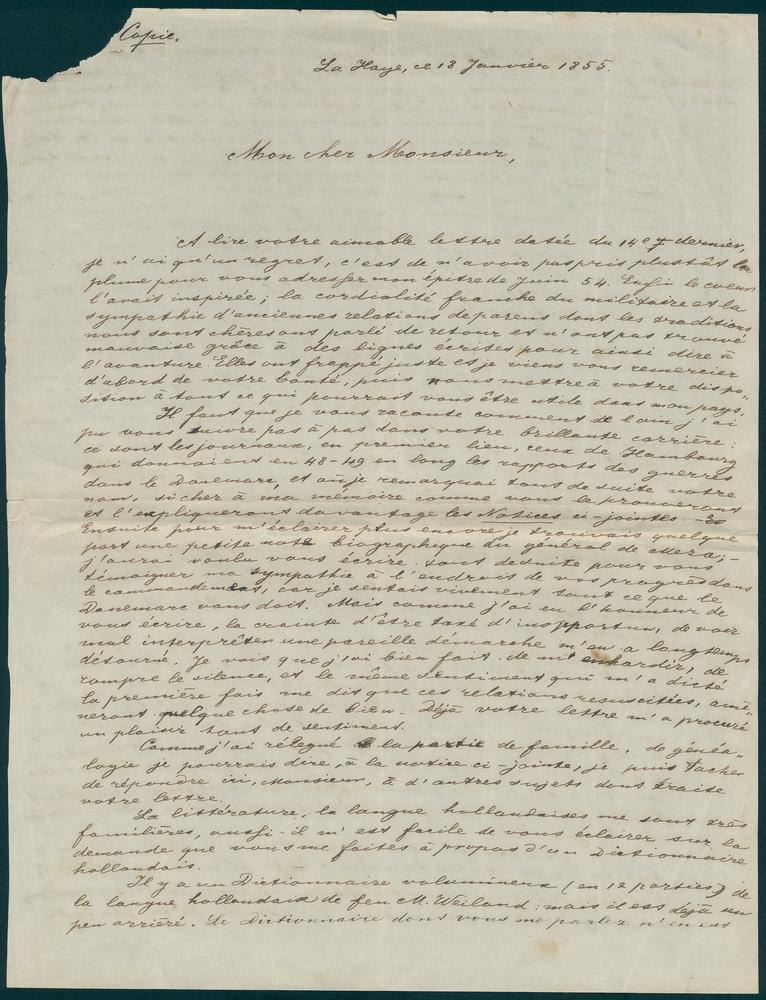 Copie.
La Haye, ce 18 Janvier 1855.
Mon cher Monsieur,
A lire votre aimable lettre datée du 14 e 7 dernier,
je n'ai qu'un regret, c'est de n'avoir pas pris plustôt la
plume pour vous adresser mon épitre de Juin 54. Enfin le coeur
l'avait inspirée; la cordialité franche du militaire et la
sympathie d'anciennes relations de parens dont les traditions
nous sont chères ont parlé de retour et n'ont pas trouvé
mauvaise grâce à des lignes écrites pour ainsi dire à
l'avanture. Elles ont frappé juste et je viens vous remercier
d'abord de votre bonté, puis nous mettre à votre dispo„
sition à tout ce qui pourrait vous être utile dans mon pays.
Il faut que je vous raconte comment de loin j'ai
pu vous suivre pas à pas dans votre brillante carrière:
ce sont les journaux, en premier lieu, ceux de Hambourg
qui donnaient en 48-49 en long les rapports des guerres
dans le Danemarc, et où je remarquai tout de suite votre
nom, si cher à ma mémoire comme vous le prouveront
et l'expliqueront davantage les Notices ci-jointes. -
Ensuite pour m'éclairer plus encore je trouvais quelque
part une petite note biographique du général de Meza; -
j'aurai voulu vous écrire tout de suite pour vous
témoigner ma sympathie à l'endroit de vos progrès dans
le commandement, car je sentais vivement tout ce que le
Danemarc vous doit. Mais comme j'ai eu l'honneur de
vous écrire, la crainte d'être taxé d'inopportun, de voir
mal interpréter une pareille démarche m'en a longtemps
détourné. Je vois que j'ai bien fait de m'enhardir, de
rompre le silence, et le même sentiment qui m'a dicté
la première fois me dit que ces relations resuscitées, amè„
neront quelque chose de bien. Déjà votre lettre m'a procuré
un plaisir tout de sentiment.
Comme j'ai rélégué la partie de famille, de généa„
logie je pourrais dire, à la notice ci-jointe, je puis tacher
de répondre ici, Monsieur, à d'autres sujets dont traite
votre lettre.
La littérature, la langue hollandaises me sont très
familières, aussi il m'est facile de vous éclairer sur la
demande que vous me faites à propos d'un Dictionnaire
hollandais.
Il y a un Dictionnaire volumineux (en 12 parties) de
la langue hollandaise de feu M. Weiland: mais il est déjà un
peu arriéré. Le Dictionnaire dont vous me parlez n'en est